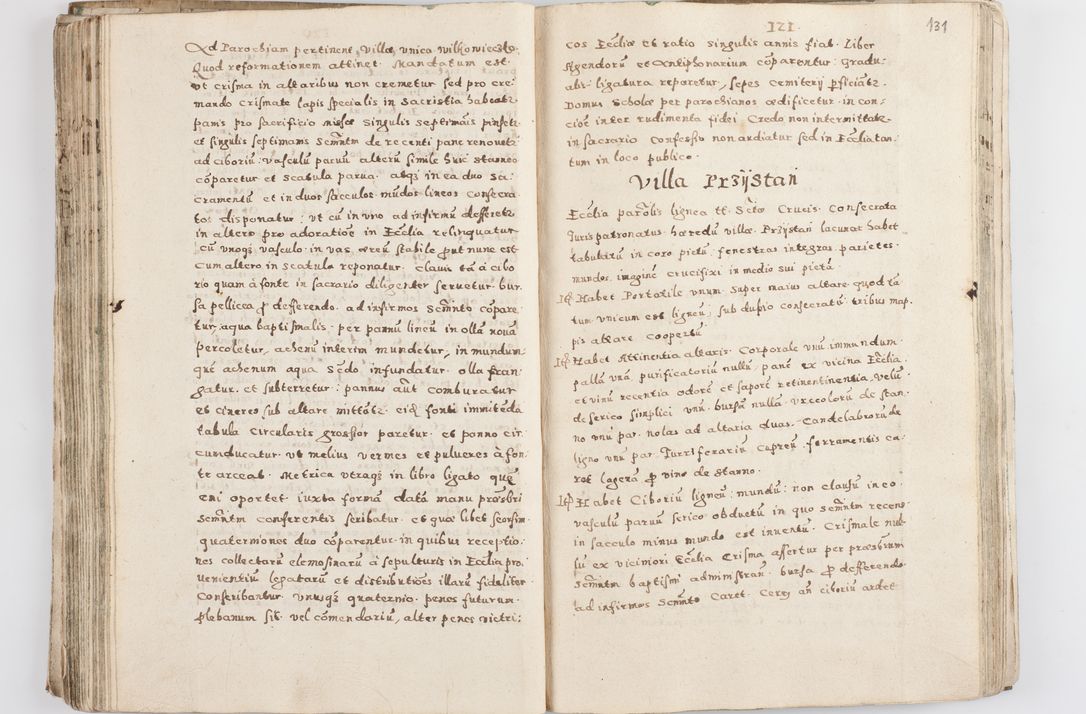 Ad Parochiam pertinent Villa unica Wilkowiecko.
Quod reformationem attinet. Mandatum est
ut crisma in altaribus non cremetur sed pro cre¬
mando crismate lapis specialis in sacristia habeatz.
panis pro sacrificio missæ singulis septimais pinsetz
et singulis septimanis Scmntm de recenti pane renovetz
ad ciboriũ vasculũ parvũ alterũ simile huic stanneo
cõparetur et scatula parva. atqz in ea duo Sa¬
cramentũ et in duos sacculos mũdos lineos consecra¬
tos disponatur. ut cũ in uno ad infirmũ defferetz
in altero pro adoratiõe in Ecclia relinquatur
cũ unoqz vasculo in vas ereũ stabile prout nunc est
cum altero in scatula reponatur. Clavis tã à cibo
rio quam à fonte in sacrario diligenter servetur. bur
sa pellicea p defferendo ad infirmos Scmnto cõpare¬
tur, aqua baptismalis per pannũ lineũ in ollã novã
percoletur, achenũ interim mundetur, in mundum¬
què achenum aqua Sedo infundatur. olla fran
gatur. et subterretur: pannus aut comburatur
et cineres sub altare mittatz. eidẽ fonti immitẽda
tabula circularis grossior paretur. et panno cir
cunducatur. ut melius vermes et pulveres à fon¬
te arceat. Metrica utraqz in libro ligato quẽ
emi oportet. iuxta formã datã manu præsbri
Scmntm conferentis scribatur. et quæ libet seorsim.
quaterniones duo cõparentur. in quibus receptio¬
nes collectarũ elemosinarũ à sepulturis in Ecclia pro¬
venientiũ legatarũ et distributiões illarũ fideliter
conscribantur. unusqz quaternio. penes futurum.
Plebanum sit. vel cõmendariũ, alter penes vietri:
121
131
cos Ecclie et ratio singulis annis fiat. Liber
Agendorũ et Antiphonarium cõparentur: gradu¬
alis. ligatura reparetur, sepes cemiterij pficiatz.
Domus scholæ per parochianos ædificetur. in con¬
cioẽ inter rudimenta fidei Credo non intermittatz.
in sacrario confessio non audiatur sed in Ecclia tan
tum in loco publico.
Villa Przÿstań
Ecclia parolis lignea tt. Sctæ Crucis. Consecrata
Iuris patronatus. hæredũ villæ. Przÿstań lacunar habet
tabulatũ in coro pictũ, fenestras integras. parietes.
mundos. imaginẽ Crucifixi in medio sui pictã.
Itẽ Habet Portatile unum. super maius altare quod tã
tum. unicum est ligneũ, sub dubio consecratũ. tribus map.
pis altare coopertũ.
Itẽ Habet Attinentia altaris. Corporale unũ immundum.
pallã unã, purificatoriũ nullũ, panẽ ex vicina Ecclia.
et vinũ recentia odorẽ et saporẽ retinentinentia, velũ
de serico simplici unũ. bursã nullã. urceolorũ de stan¬
no unũ par. nolas ad altaria duas. Candelabrorũ de
ligno unũ par. Turriferariũ cupreũ. ferramentis ca¬
ret lagenã p vino de stanno.
Itẽ Habet Ciboriũ ligneũ: mundũ: non clausũ in eo
vasculũ parvũ serico obductũ in quo Scmntm recens
in sacculo minus mundo est inventũ. Crismale nul¬
lũ ex viciniori Ecclia Crisma affertur per præsbrum
Scmntm baptismi administran. bursa p defferendo
ad infirmos Scmnto caret. Cereo añ ciboriũ ardet